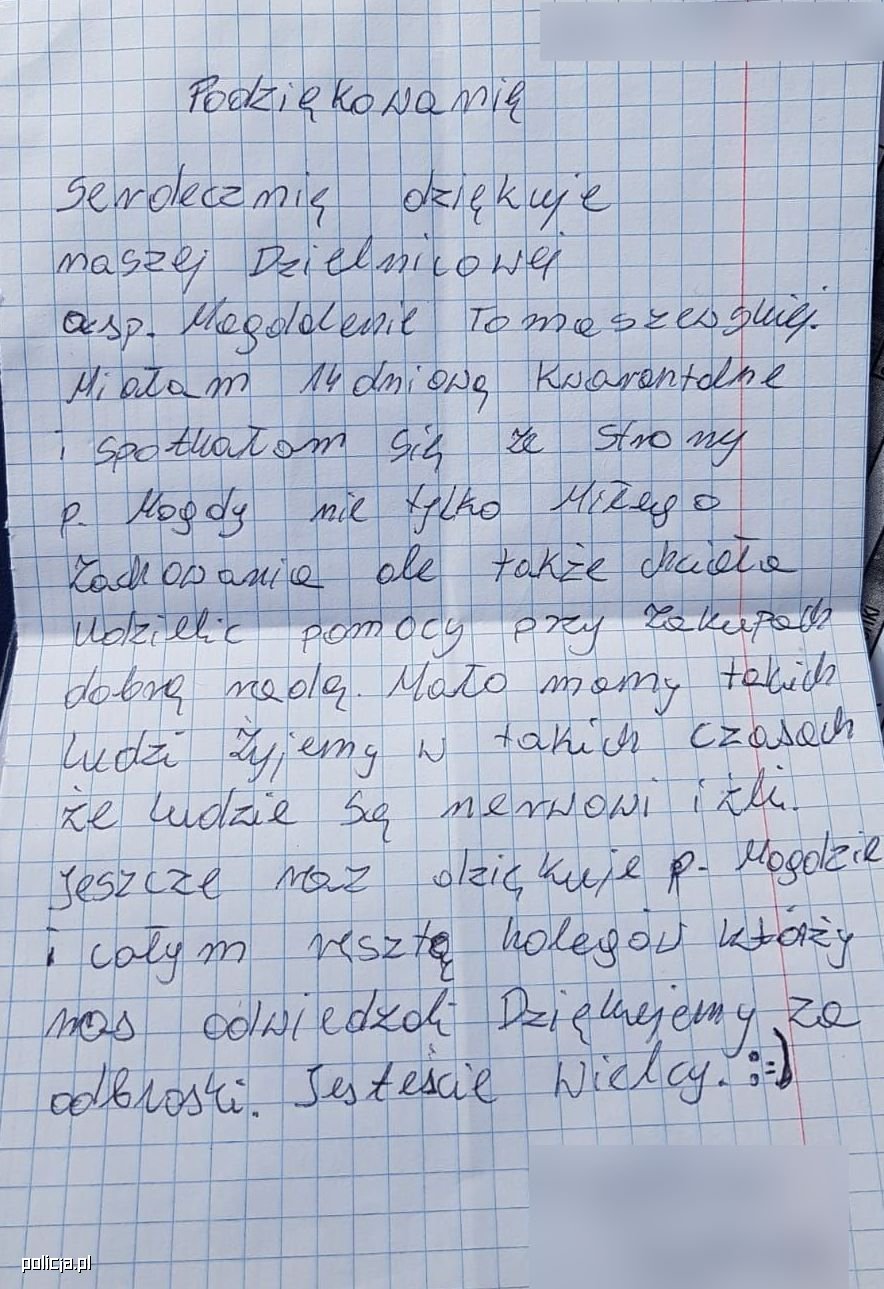 Podziękowanię
Serdecznię dziękuje
naszej Dzielnicowej
asp. Magdalenie Tomaszewskiej.
Miałam 14 dniową kwarantalne
i spotkałam się ze strony
p. Magdy nie tylko Miłego
zachowania ale także chciała
udzielic pomocy przy zakupach
dobrą radą. Mało mamy takich
ludzi żyjemy w takich czasach
że ludzie są nerwowi i źli.
jeszcze raz dziękuje p. Magdzie
i całym resztę kolegów którży
nas odwiedzali Dziękujemy za
odbloski. Jesteście wielcy. :=)
policja.pl